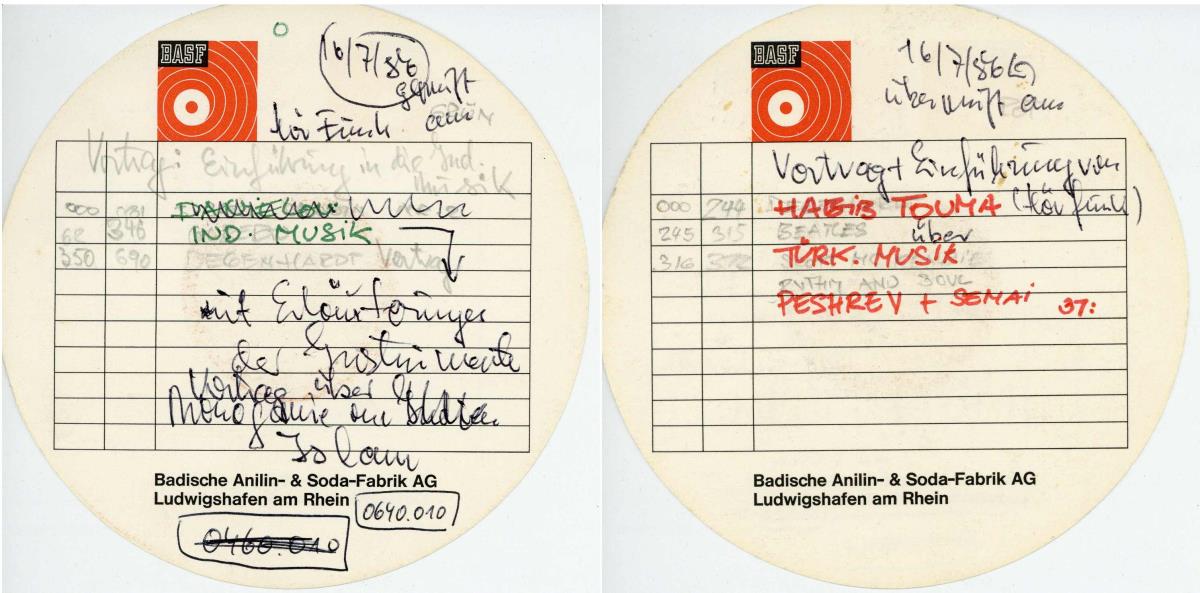 BASF
16/7/86
geprüft
am
Hörfunk
GRÜN
Vortrag: Einführung in die Ind.
Musik
000
IND. MUSIK
346
350 690 DEGENHARDT Vortrag
mit Erläuterungen
der Instrumente
Vortrag über
Islam
Badische Anilin- & Soda-Fabrik AG
Ludwigshafen am Rhein
0640.010
0460.010
BASF
16/7/86
überprüft am
Vortrag + Einführung von
000 244 HABIB TOUMA (Hörfunk)
245 315 BEATLES über
316 TÜRK. MUSIK
RYTHM AND SOUL
PESHREV + SEMAI 37:
Badische Anilin- & Soda-Fabrik AG
Ludwigshafen am Rhein